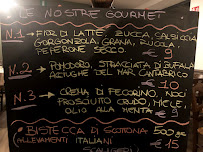 LE NOSTRE GOURMET
N.1 → FIOR DI LATTE, ZUCCA, SALSICCIA
GORGONZOLA, GRANA, RUCOLA
PEPERONE SECCO 9
N.2 → POMODORO, STRACCIATA DI BUFALA
ACIUGHE DEL MAR CANTABRICO
€ 10
N.3 → CREMA DI PECORINO, FIORI
PROSCIUTTO CRUDO, MIELE,
OLIO ALLA MENTA € 9
BISTECCA DI SCOTTONA 500 gr
(ALLEVAMENTI ITALIANI € 15